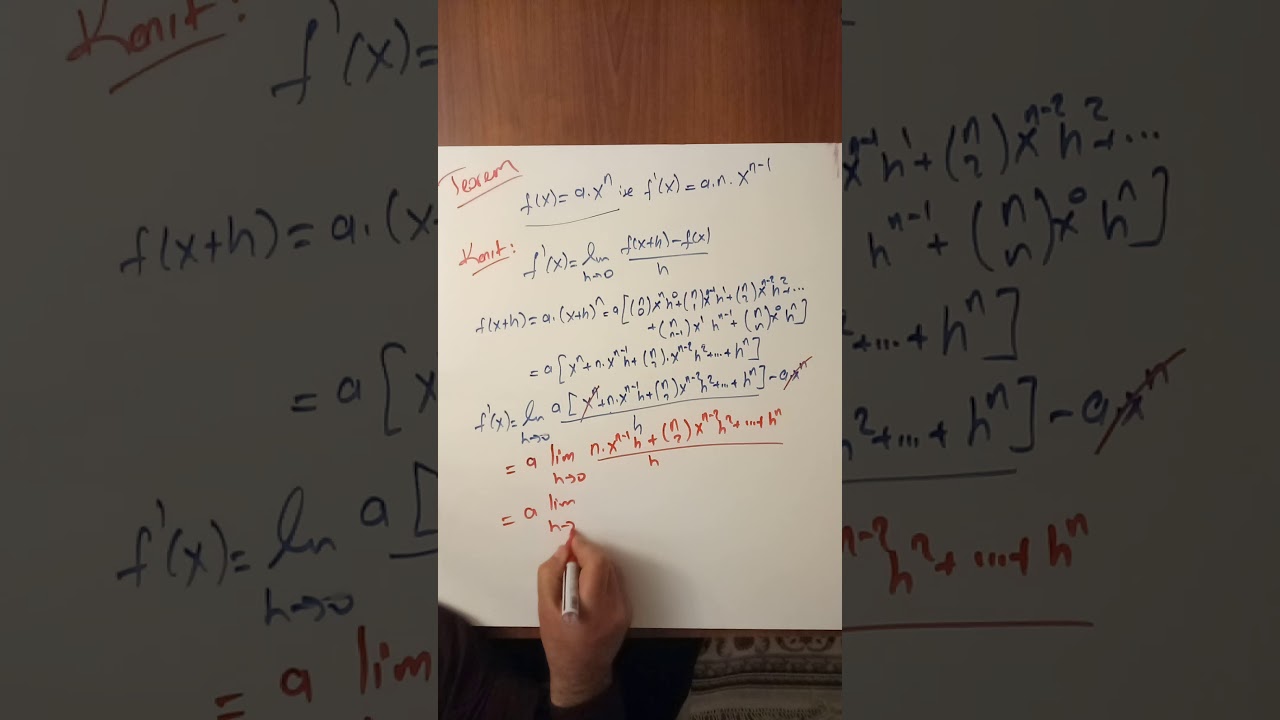 Teorem
f(x)=a.xⁿ ise f'(x)=a.n.xⁿ⁻¹
Kanıt:
f'(x)=lim h→0 f(x+h)-f(x) / h
f(x+h)=a.(x+h)ⁿ=a[(n 0)xⁿh⁰+(n 1)xⁿ⁻¹h¹+(n 2)xⁿ⁻²h²+...
+(n n-1)x¹hⁿ⁻¹+(n n)x⁰hⁿ]
=a[xⁿ+n.xⁿ⁻¹h+(n 2).xⁿ⁻²h²+...+hⁿ]
f'(x)=lim h→0 a[xⁿ+n.xⁿ⁻¹h+(n 2)xⁿ⁻²h²+...+hⁿ]-a.xⁿ / h
=a lim h→0 n.xⁿ⁻¹h+(n 2)xⁿ⁻²h²+...+hⁿ / h
=a lim h→